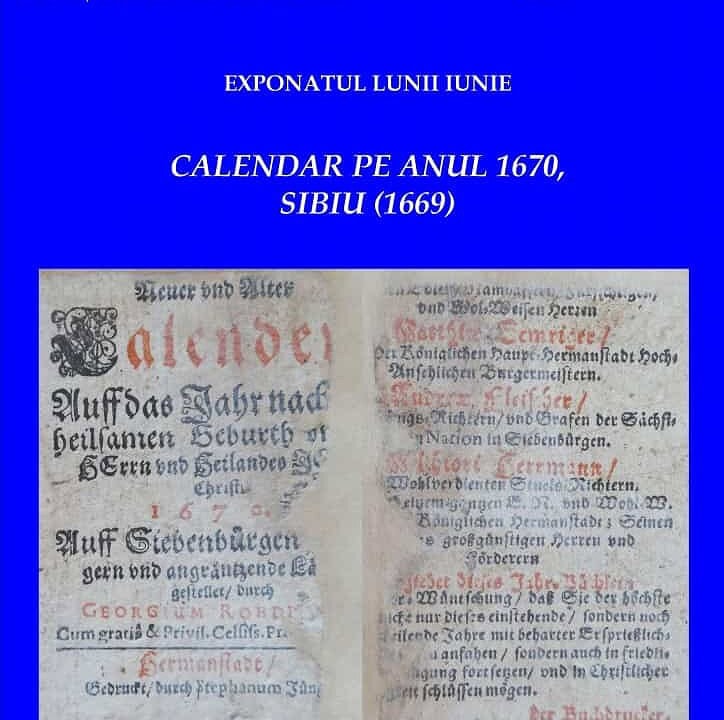 EXPONATUL LUNII IUNIE
CALENDAR PE ANUL 1670,
SIBIU (1669)
Neuer vnd Altes
Calender
Auff das Jahr nach
heilsamen Geburth
HErrn vnd Heilandes
Christi
1670.
Auff Siebenbürgen
gern vnd angräntzende
gestellet / durch
GEORGIUM
Cum gratiâ & Privil. Celsiss. Pr.
Hermanstadt /
Gedruckt / durch Stephanum Jün
vnd Wol-Weisen Herren
Semriger /
Der Königlichen Haupt-Hermanstadt Hoch-
Ansehlichen Burgermeistern.
Fleischer /
Richtern / vnd Grafen der Sächsi-
Nation in Siebenbürgen.
Herrmann /
Wohlverdienten Stuels-Richtern.
gantzen E. N. vnd Wohl-W.
Königlichen Hermanstadt; Seinen
großgünstigen Herren vnd
Förderern
dieses Jahr
Wüntschung / daß Sie der höchste
nicht nur dieses einstehende / sondern noch
Jahre mit beharter Ersprießlich-
anfahen / sondern auch in friedli-
fortsetzen / vnd in Christlicher
schlüssen mögen.
der Buchdrucker.